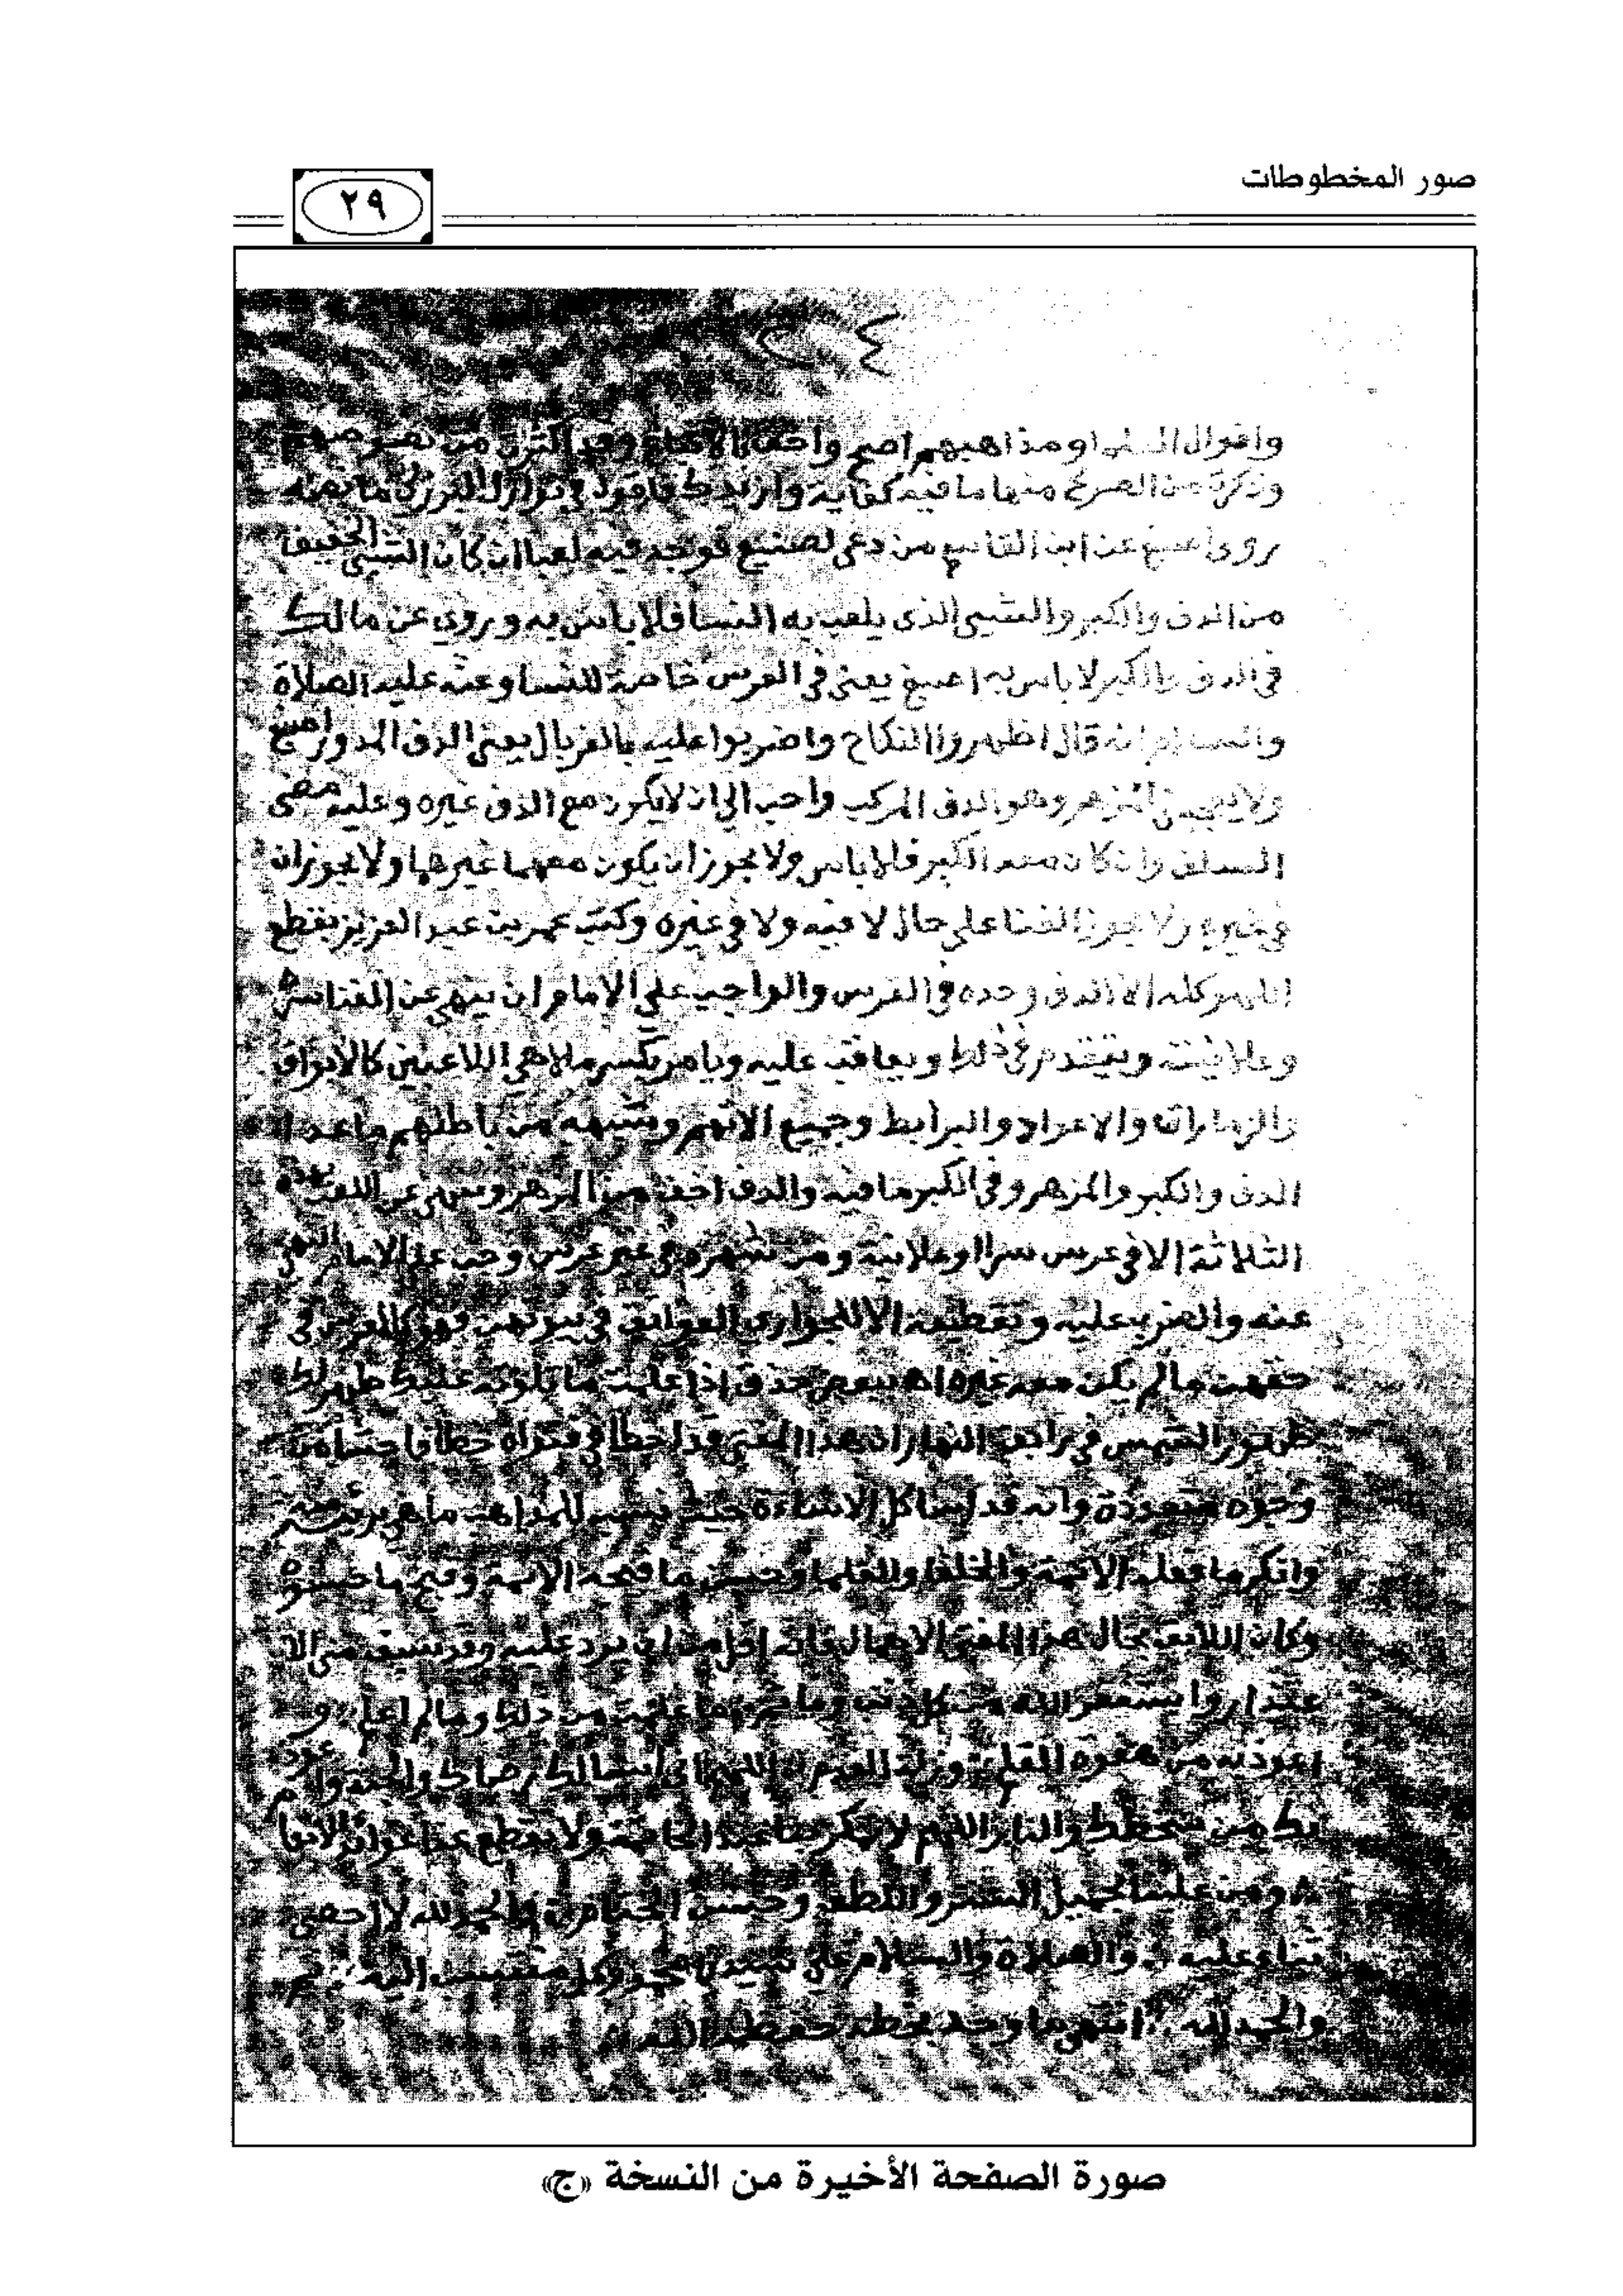 صور المخطوطات
٢٩
واقوال ومذاهبهم اصح واحق بالاتباع وقد من
وذكرت من الصريح منها ما فيه كفاية وازيدك فاقول في نوازل البرزلي ما نصه
روى اصبغ عن ابن القاسم من دعى لصنيع فوجد فيه لعبا ان كان الشيى الخفيف
من الدف والكبر والشيى الذى يلعب به النسا فلا باس به وروى عن مالك
في الدف والكبر لا باس به اصبغ يعنى في العرس خاصة للنسا وعنه عليه الصلاة
والسلام انه قال اظهروا النكاح واضربوا عليه بالغربال يعنى الدف المدور اصبغ
ولا يعجبنى المزهر وهو الدف المركب واحب الي ان لا يكون مع الدف غيره وعليه مضى
السلف وان كان معه الكبر فلا باس ولا يجوز ان يكون معهما غيرهما ولا يجوزان
في غيره ولا يجوز الغنا على حال لا فيه ولا في غيره وكتب عمر بن عبد العزيز بقطع
اللهو كله الا الدف وحده في العرس والواجب على الامام ان ينهى عن الغنا سره
وعلانيته ويتقدم في ذلك ويعاقب عليه ويامر بكسر ملاهى اللاعبين كالابواق
والزمارات والاعواد والبرابط وجميع وشبهه من باطلهم ما عدا
الدف والكبر والمزهر وفي الكبر ما فيه والدف اخف من المزهر وينهى عن اللعب بهذه
الثلاثة الا في عرس سرا وعلانية ومن شهره في غير عرس وجب على الامام النهى
عنه والضرب عليه وتقطيعه الا للجوارى العواتق في بيوتهن فهو كالعرس في
حقهن ما لم يكن معه غيره اهـ اذا علمت ما تلوته عليك ظهر لك
ظهور الشمس في رابعة النهار ان هذا المفتى قد اخطا في فتواه خطا فاحشا من
وجوه متعددة وانه قد اساء كل الاساءة حيث نسب للمذاهب ما هى بريئة منه
وانكر ما فعله الائمة والخلفا والعلما وحسن ما قبحه الائمة وقبح ما حسنوه
وكان اللائق بحال هذا المفتى الاهمال فانه اقل من ان يرد عليه وقد سبق منى الا
عتذار وانا استغفر الله من كل ذنب ما علمت من ذلك وما لم اعلم و
اعوذ به من هفوة القلم وزلة القدم اللهم انى اسالك رضاك والجنة واعوذ
بك من سخطك والنار اللهم لا تمكر بنا عند الخاتمة ولا تقطع عنا
ومن علينا بجميل الستر واللطف وحسن الختام والحمد لله لا احصى
ثناء عليه والصلاة والسلام على سيدنا محمد وكل منتسب اليه تم
والحمد لله انتهى ما وجد بخطه حفظه الله
صورة الصفحة الأخيرة من النسخة «ج»